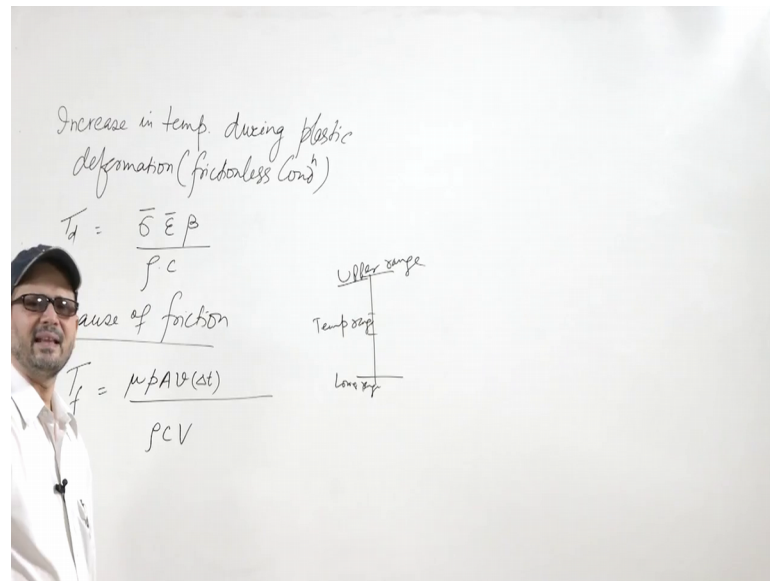 Increase in temp. during plastic
deformation (frictionless Condⁿ)
T_d = σ̄ ε̄ β
ρ.C
ause of friction
T_f = μpAv(Δt)
ρCV
Upper range
Temp range
Lower